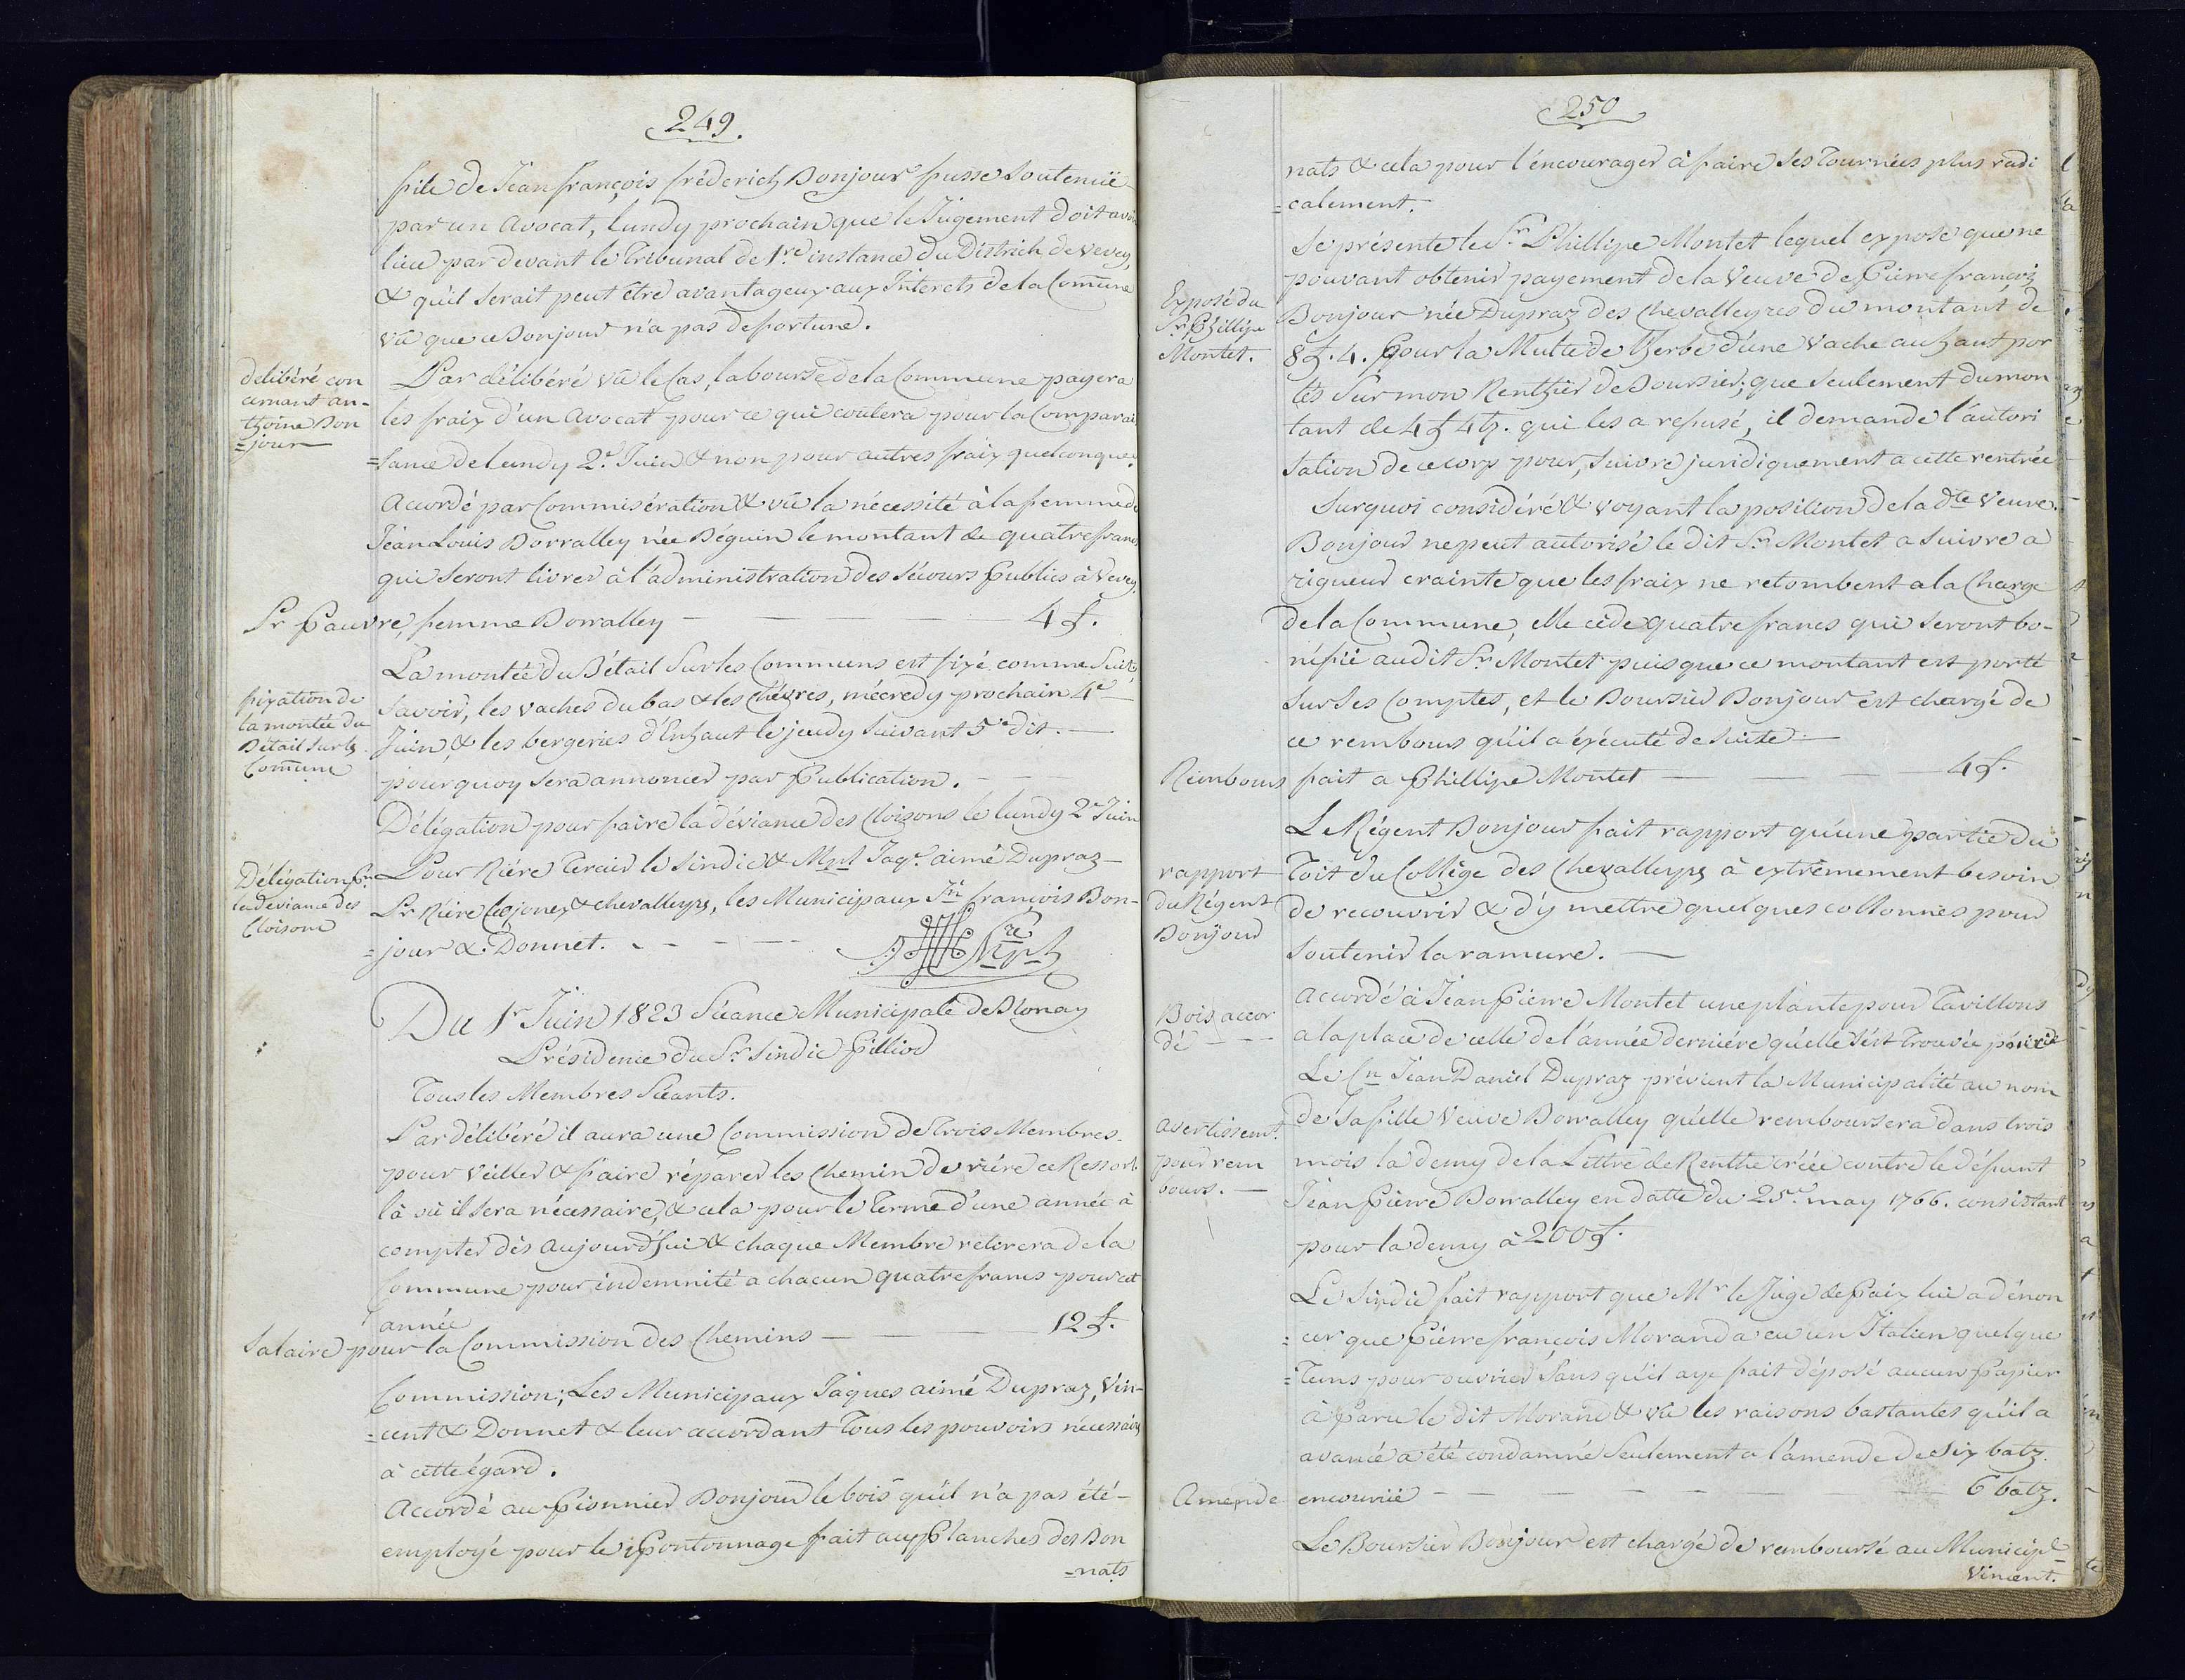 249.
file de Jean françois fréderich Bonjour fusse soutenüe
par un Avocat, lundy prochain que le Jugement doit avoir
lieu par devant le Tribunal de 1.re instance du Districh de Vevey,
& qu'il serait peut être avantageux aux Interets de la Comune
vû que ce Bonjour n'a pas de fortune.
délibéré con
cernant An-
thoine Bon
=jour
Par délibéré vû le Cas, la bourse de la Commune payera
les fraix d'un Avocat pour ce qui coutera pour la Comparai
=sance de lundy 2.e Juin & non pour autres fraix quelconque.
Accordé par Commisération & vû la nécessité à la femme de
Jean Louis Borralley née Béguin le montant de quatre francs
qui seront livrer à l'administration des Sécours Publics à Vevey.
Pr Pauvre, femme Borralley — — — — 4 f.
fixation de
la montée du
Bétail sur les
Comune
La montée du Bétail sur les Communs est fixé comme suit,
savoir, les vaches du bas & les chèvres, mécredy prochain 4e
Juin, & les bergeries d'Enhaut le jeudy suivant 5e dit. —
pourquoy sera annoncer par Publication. —
Délégation pour faire la déviance des Cloisons le lundy 2e Juin
Délégation Pr
la deviance des
Cloisons
Pour Riére Tercier le sindic & Mpl Jaqs. aimé Dupraz —
Pr Riére Cojonex & Chevalleyrs, les Municipaux Jn françois Bon-
=jour & Donnet. - - - -
Du 1r Juin 1823 Séance Municipale de Blonay
Présidence du Sr. Sindic Pilliod
Tous les Membres Séants.
Par délibéré il aura une Commission de trois Membres.
pour veiller & faire réparer les Chemin de riére ce Ressort
là où il sera nécessaire, & cela pour le Terme d'une année à
compter dès aujourd'hui & chaque Membre retirera de la
Commune pour indemnité a chacun quatre francs pour cet
année
Salaire pour la Commission des Chemins — — — 12 f.
Commission; Les Municipaux Jaques aimé Dupraz, Vin-
=cent & Donnet & leur accordant tous les pouvoirs nécessaires
à cette égard.
Accordé au Pionnier Bonjour le bois qu'il n'a pas été-
employé pour le Pontonnage fait aux Planches des Bon
=nats
250
nats & cela pour l'éncourager à faire ses Tournées plus radi
=calement.
Exposé du
Sr. Phillipe
Montet.
Se présente le Sr. Phillipe Montet lequel expose que ne
pouvant obtenir payement de la Veuve de Pierre françois
Bonjour née Dupraz des Chevalleyres du montant de
8 f. 4. pour la Multe de l'herbe d'une Vache au haut por
tés sur mon Renthier de Boursier; que seulement du mon
tant de 4 f 4 b. qui les a refusé, il demande l'autori
sation de ce corps pour, suivre juridiquement a cette rentrée
Surquoi considéré & voyant la position de la dte Veuve.
Bonjour ne peut autorisé le dit Sr. Montet a suivre a
rigueur crainte que les fraix ne retombent a la Charge
de la Commune, elle cède quatre francs qui seront bo-
nifié au dit Sr. Montet puis que ce montant est porté
sur ses Comptes, et le Boursier Bonjour est chargé de
ce rembours qu'il a éxécuté de suite —
Rembours fait a Phillipe Montet — — 4 f.
rapport
du Régent
Bonjour
Le Régent Bonjour fait rapport qu'une partie du
Toit du Collège des Chevalleyrs à extrèmement besoin
de recouvrir & d'y mettre quelques collonnes pour
soutenir la ramure. —
Bois accor
dé — — —
Accordé à Jean Pierre Montet une plante pour Tavillons
a la place de celle de l'année derniére qu'elle s'ést trouvée
Avertissemt.
pour rem
bours. —
Le Cn Jean Daniel Dupraz prévient la Municipalité au nom
de sa fille Veuve Borralley qu'elle remboursera dans trois
mois la demy de la Lettre de Renthe créée contre le défunt
Jean Pierre Borralley en datte du 25e may 1766. consistant
pour la demy à 200 f.
Le Sindic fait rapport que Mr le Juge de Paix lui a dénon
=cer que Pierre françois Morand a eu un Italien quelque
=Tems pour ouvrier sans qu'il aye fait déposé aucun Papier
à Paru le dit Morand & vû les raisons bastantes qu'il a
avancé a été condamné seulement a l'amende de six batz.
Amende encourüe — — — — — 6 batz.
Le Boursier Bonjour est chargé de remboursé au Municipl
Vincent.